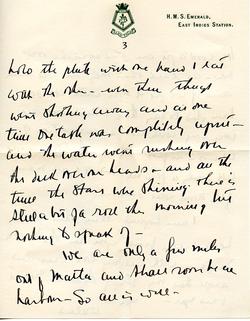 H.M.S. EMERALD,
EAST INDIES STATION.
3
hold the plate with one hand & eat
with the other – even then things
went shooting away and at one
time one table was completely upset –
and the water went rushing over
the deck over our heads – and all the
time the stars were shining. There is
still a bit of a roll this morning but
nothing to speak of –
We are only a few miles
out of Malta and shall soon be in
harbour – So all is well –